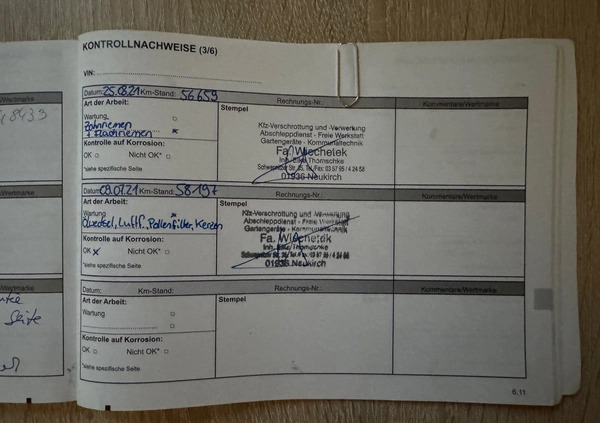 KONTROLLNACHWEISE (3/6)
VIN:
Datum: 25.0821 Km-Stand: 56659
Rechnungs-Nr.:
Kommentare/Wertmarke
Art der Arbeit:
Stempel
Wartung
Zahnriemen
+ Flachriemen x
Kontrolle auf Korrosion:
OK Nicht OK*:
*siehe spezifische Seite
Kfz-Verschrottung und -Verwertung
Abschleppdienst - Freie Werkstatt
Gartengeräte - Kommunaltechnik
Fa. Wiechetek
Inh. Thomschke
Schwepnitzer Str. 35, Tel./Fax: 03 57 95 / 4 24 58
01936 Neukirch
Datum: 09.0721 Km-Stand: 58197
Rechnungs-Nr.:
Kommentare/Wertmarke
Art der Arbeit:
Stempel
Wartung x
Luftf., Pollenfilter, Kerzen
Kontrolle auf Korrosion:
OK x Nicht OK*:
*siehe spezifische Seite
Kfz-Verschrottung und -Verwertung
Abschleppdienst - Freie Werkstatt
Gartengeräte - Kommunaltechnik
Fa. Wiechetek
Inh. Thomschke
01936 Neukirch
Datum: Km-Stand:
Rechnungs-Nr.:
Kommentare/Wertmarke
Art der Arbeit:
Stempel
Wartung
Kontrolle auf Korrosion:
OK Nicht OK*:
*siehe spezifische Seite
6.11
/Wertmarke
8433
/Wertmarke
/Wertmarke
Seite